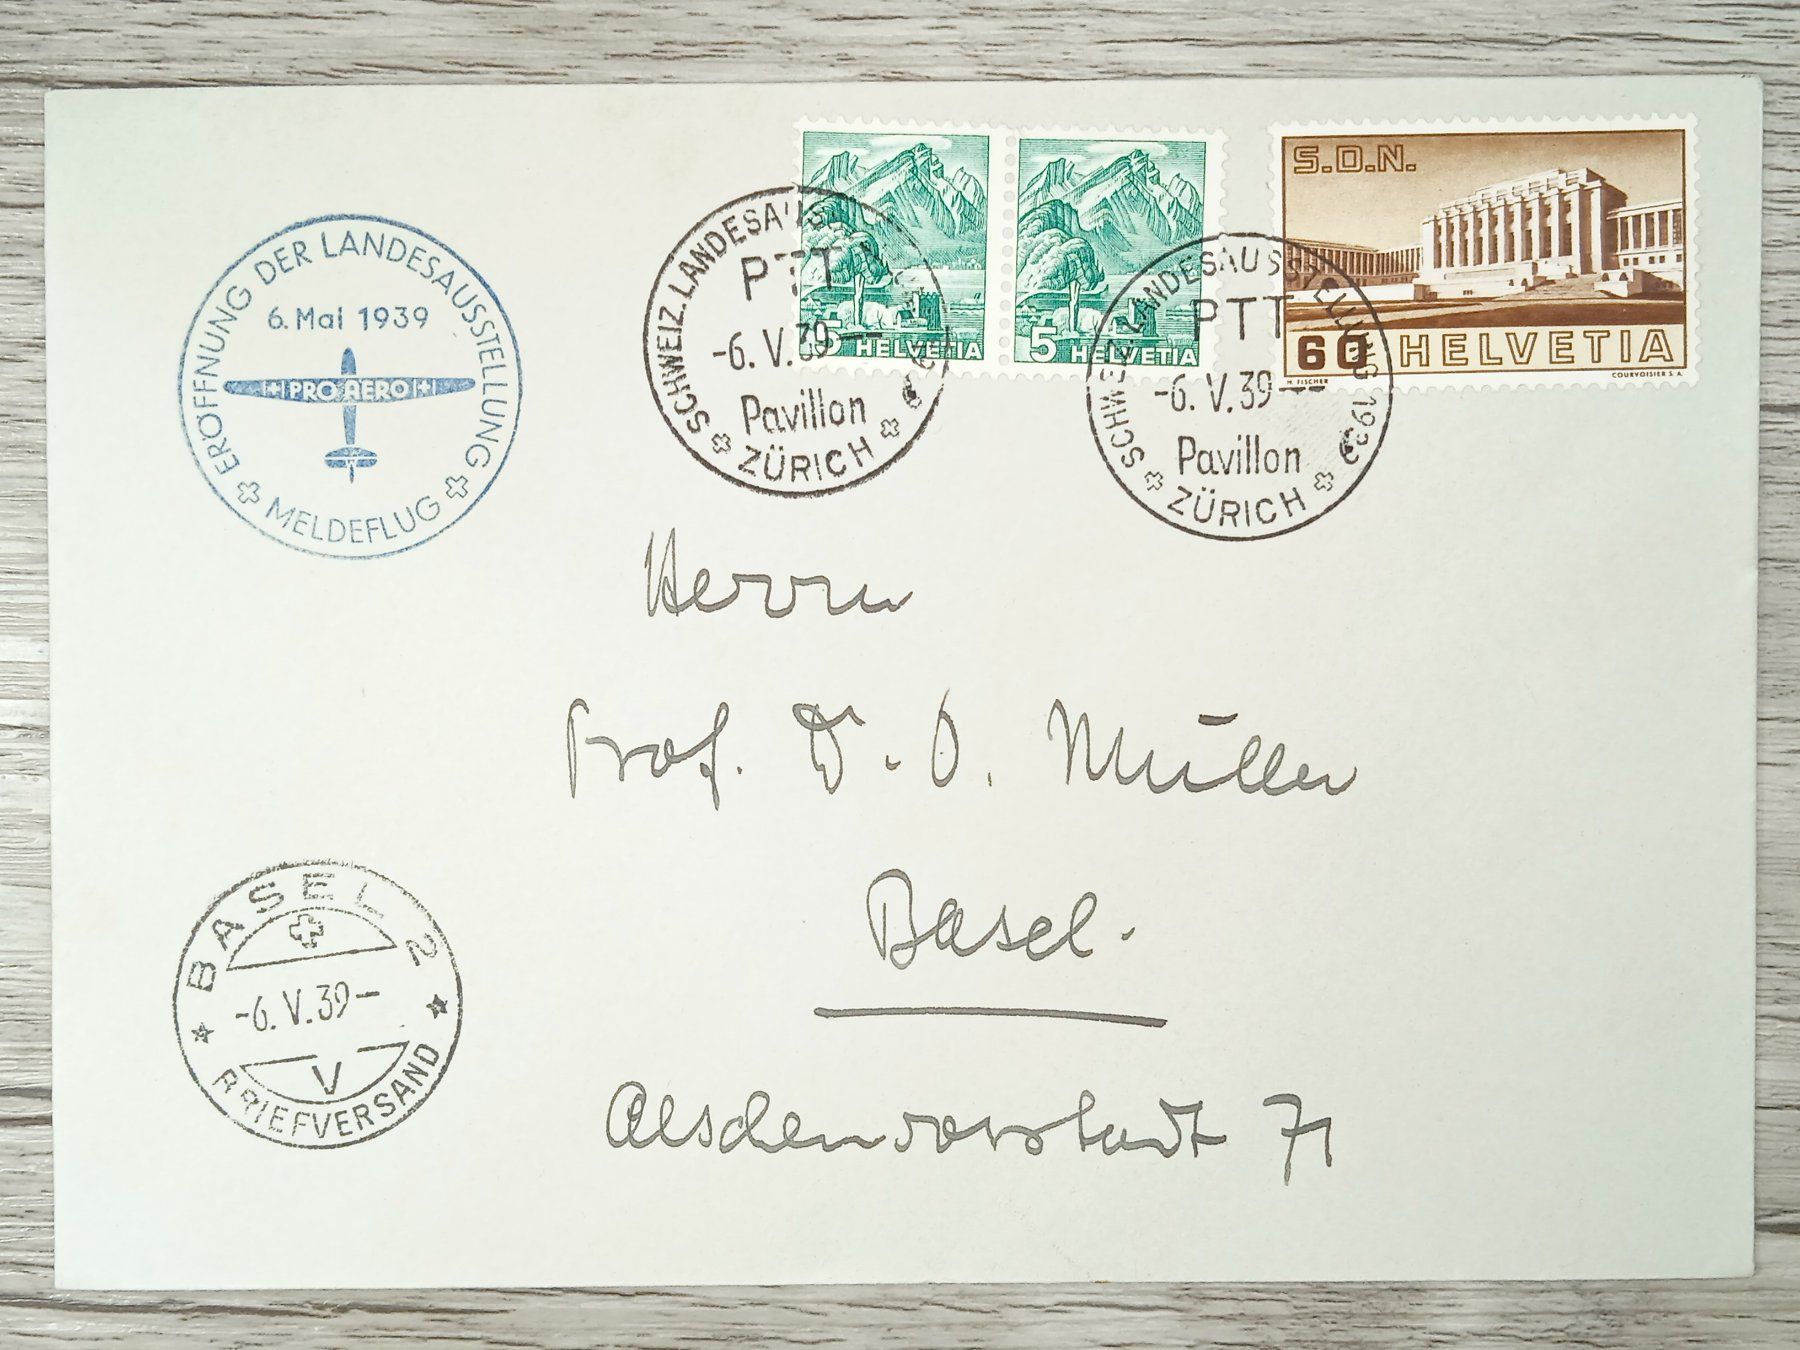 ERÖFFNUNG DER LANDESAUSSTELLUNG
6. Mai 1939
PRO AERO
MELDEFLUG
SCHWEIZ. LANDESAUSSTELLUNG 1939
PTT
-6. V. 39-
Pavillon
ZÜRICH
5 HELVETIA
5 HELVETIA
SCHWEIZ. LANDESAUSSTELLUNG 1939
PTT
-6. V. 39-
Pavillon
ZÜRICH
S.D.N.
60 HELVETIA
H. FISCHER
COURVOISIER S.A.
Herrn
Prof. Dr. O. Müller
Basel.
Aeschenvorstadt 71
BASEL 2
-6. V. 39-
V
BRIEFVERSAND